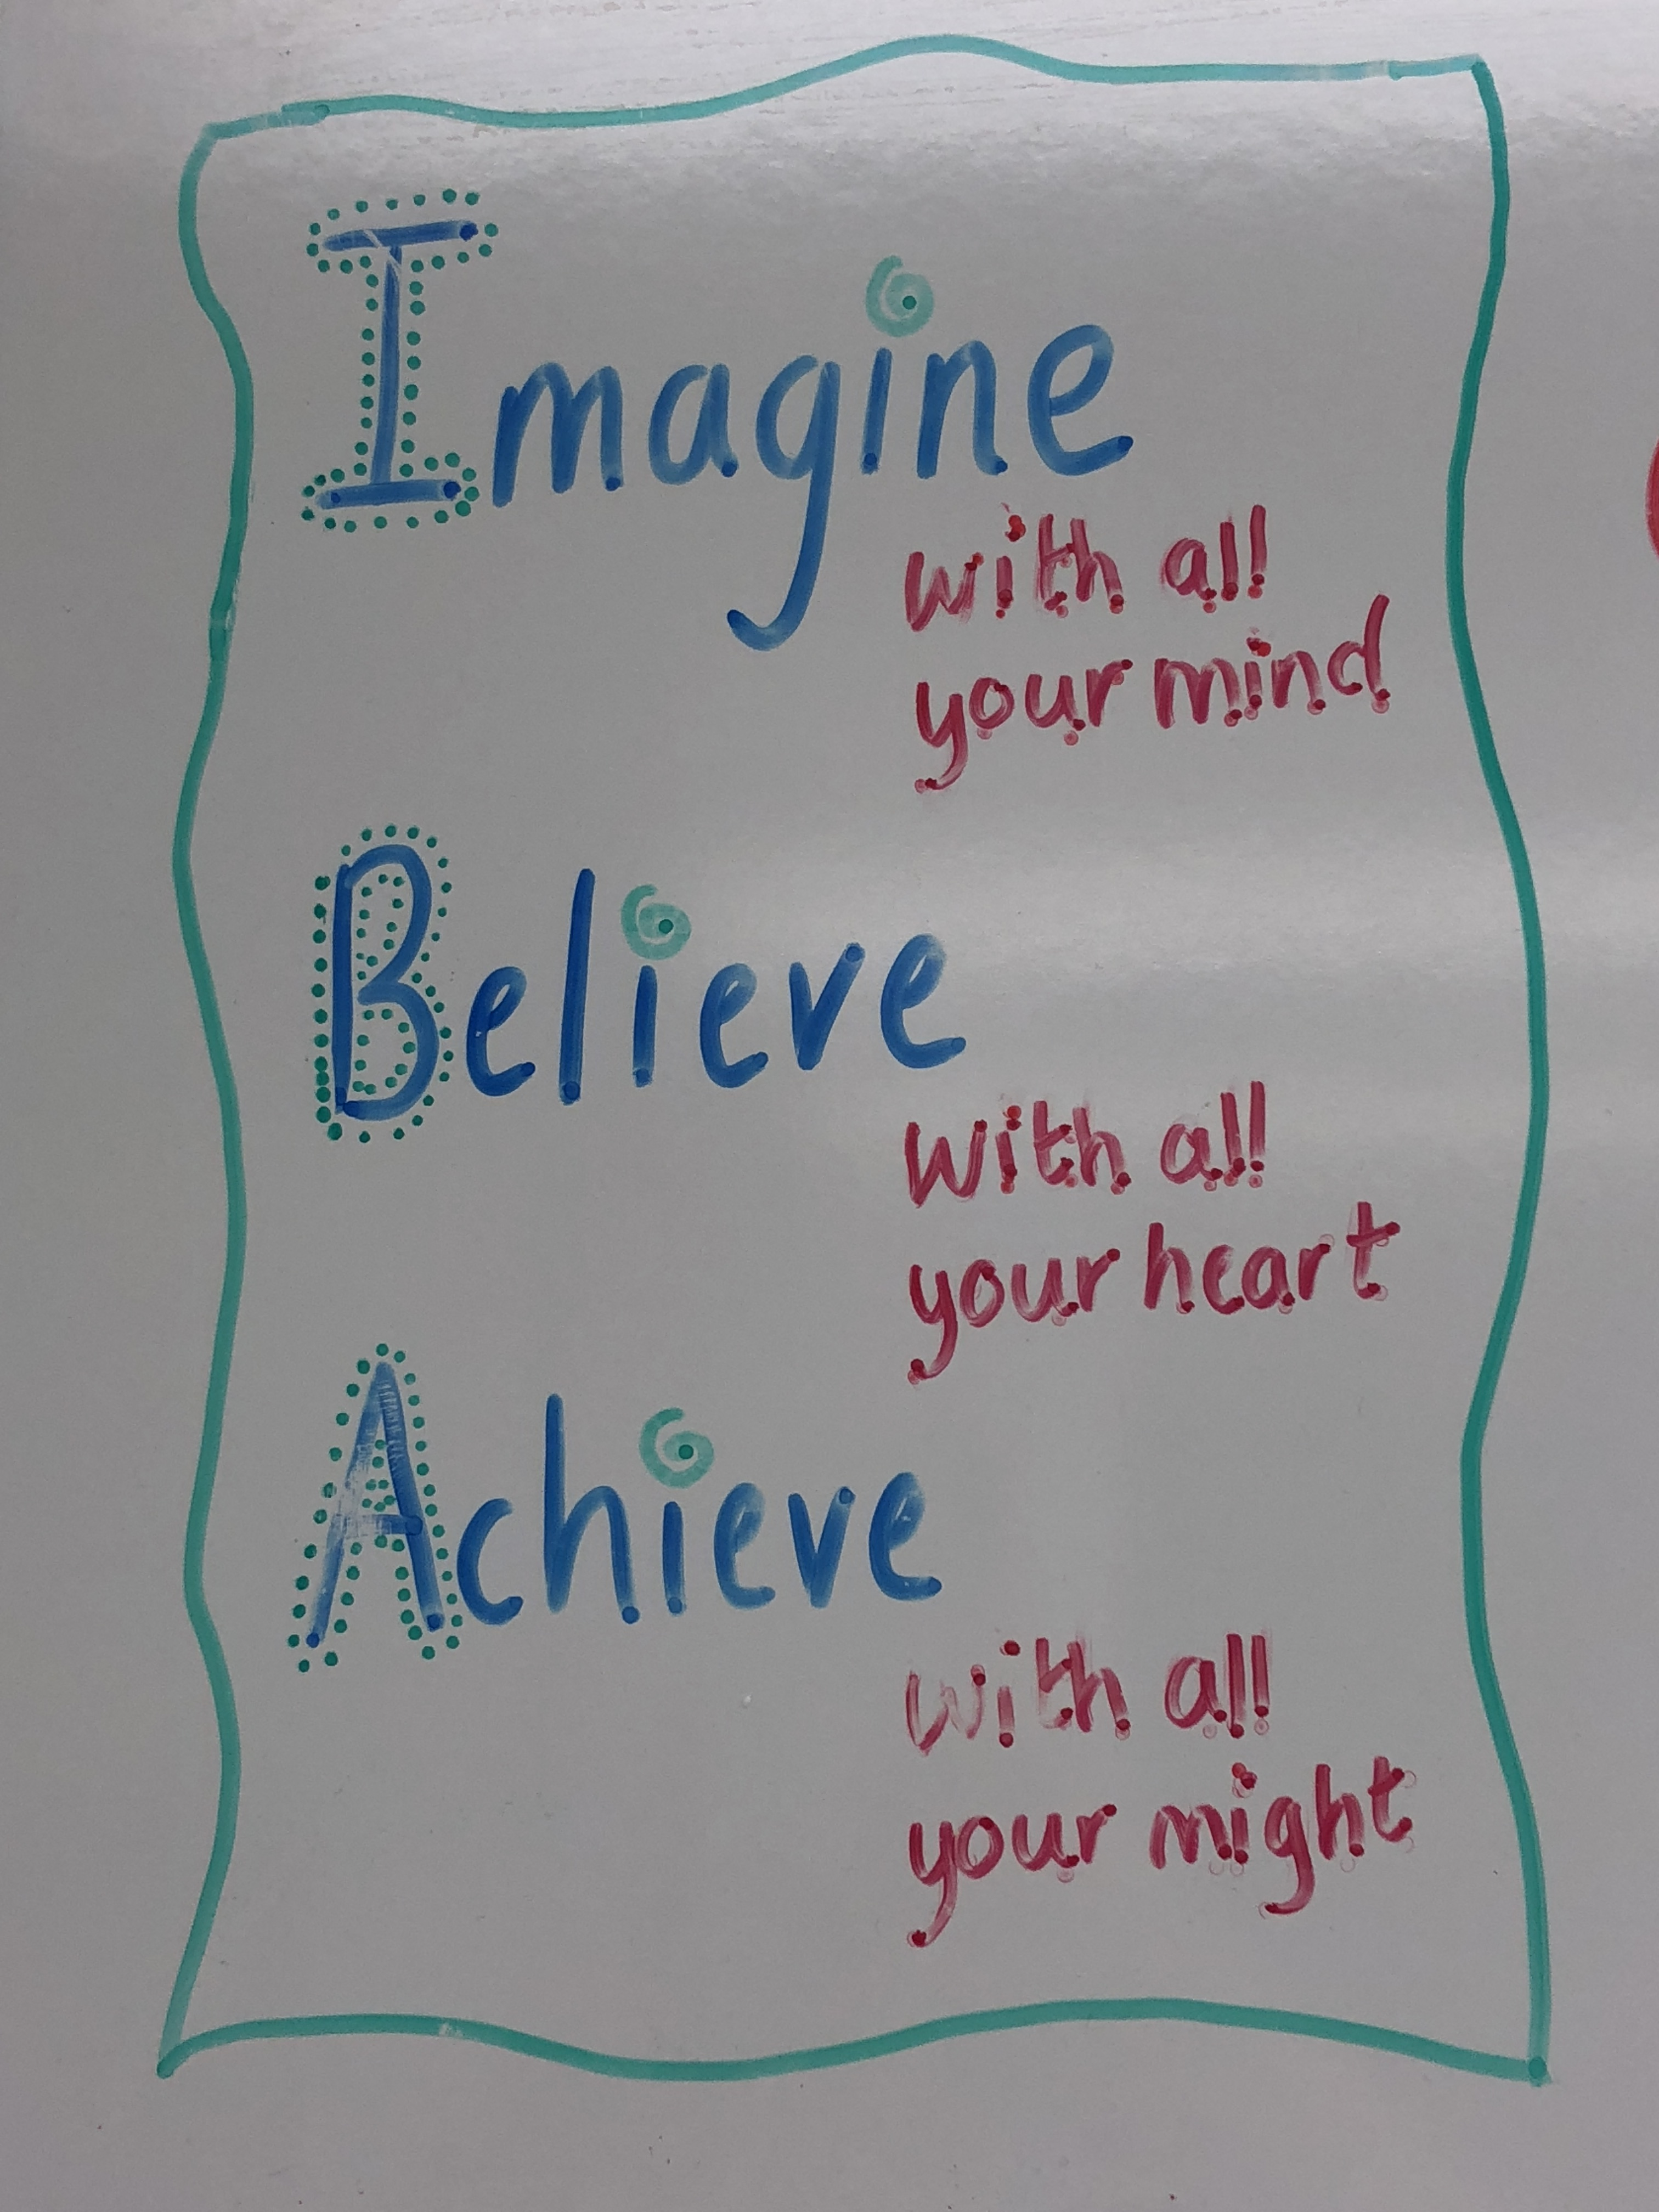 Imagine
with all
your mind
Believe
with all
your heart
Achieve
with all
your might